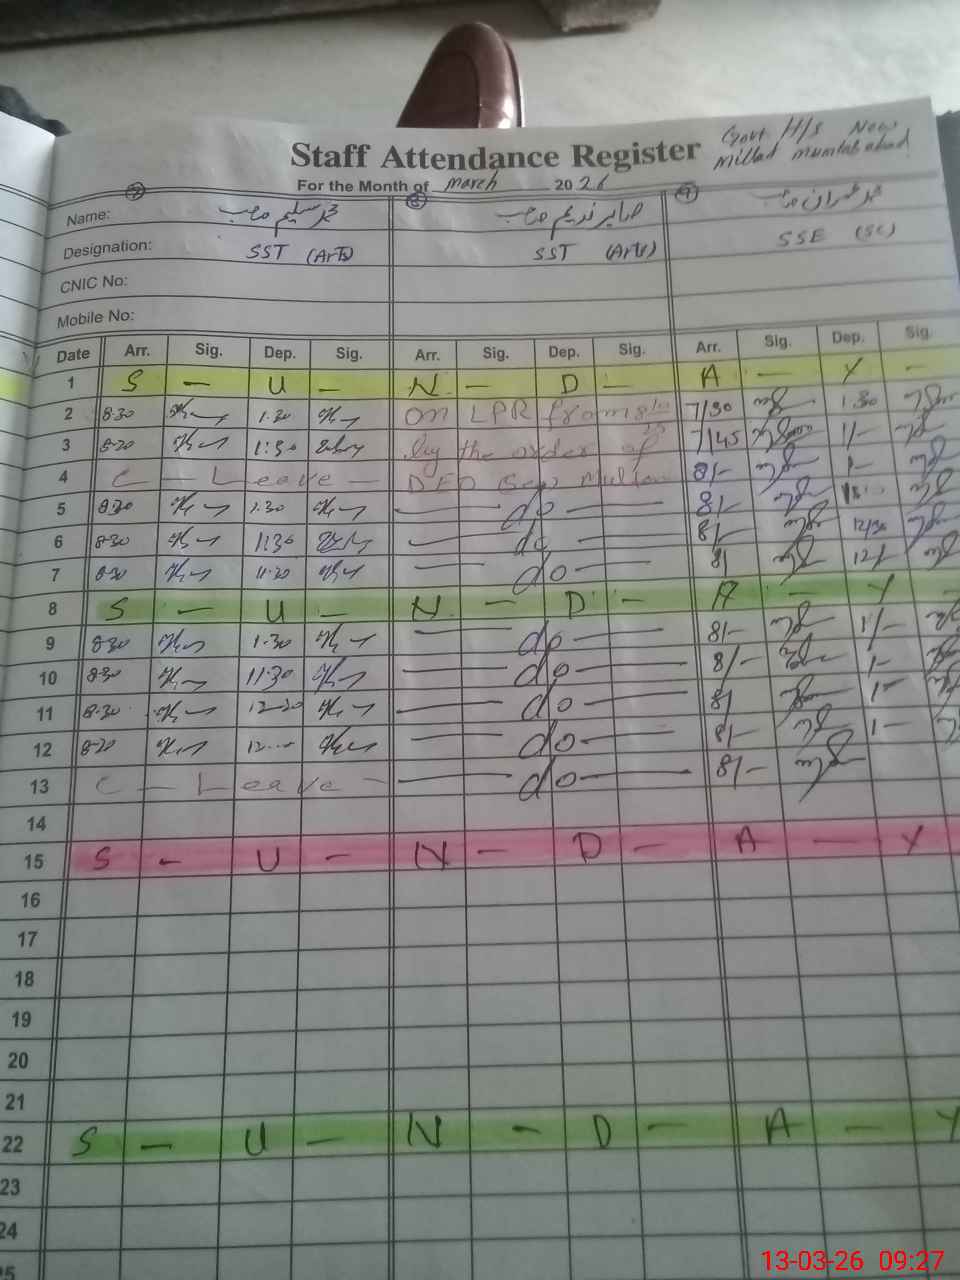 Govt H/S New
Staff Attendance Register Millad mumtabahad
For the Month of March 2026
7 8 9
Name: محمد سلیم صاحب صابر ندیم صاحب محمد عمران صاحب
Designation: SST (Arts) SST (Arts) SSE (SC)
CNIC No:
Mobile No:
Date Arr. Sig. Dep. Sig. Arr. Sig. Dep. Sig. Arr. Sig. Dep. Sig.
1 S - U - N - D - A - Y -
2 8-30 1.30 On LPR from 7/30 1.30
3 8-30 1:30 by the order of 7/45 1/-
4 C - Leave - DEO Sep Multan 8/- 1-
5 8-30 1.30 do 8/-
6 8-30 11 30 do 8/- 12/30
7 8-30 11.30 do 8/ 12/
8 S - U - N - D - A - Y -
9 8-30 1-30 do 8/- 1/-
10 8-30 11-30 do 8/- 1-
11 8-30 12-20 do 8/ 1-
12 8-30 12 do 8/- 1-
13 C - Leave - do 8/-
14
15 S - U - N - D - A - Y
16
17
18
19
20
21
22 S - U - N - D - A - Y
23
24
25
13-03-26 09:27